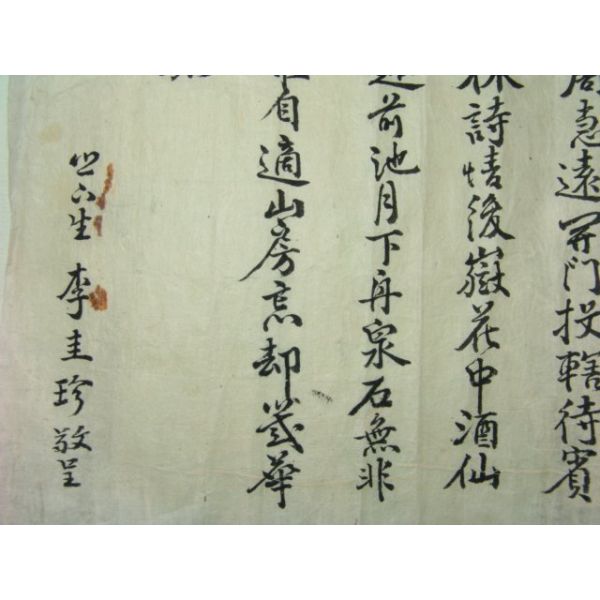 惠遠開門投轄待賓
林詩情後嶽花中酒仙
前池月下舟泉石無非
自適山房忘却幾華
生 李圭珍 敬呈